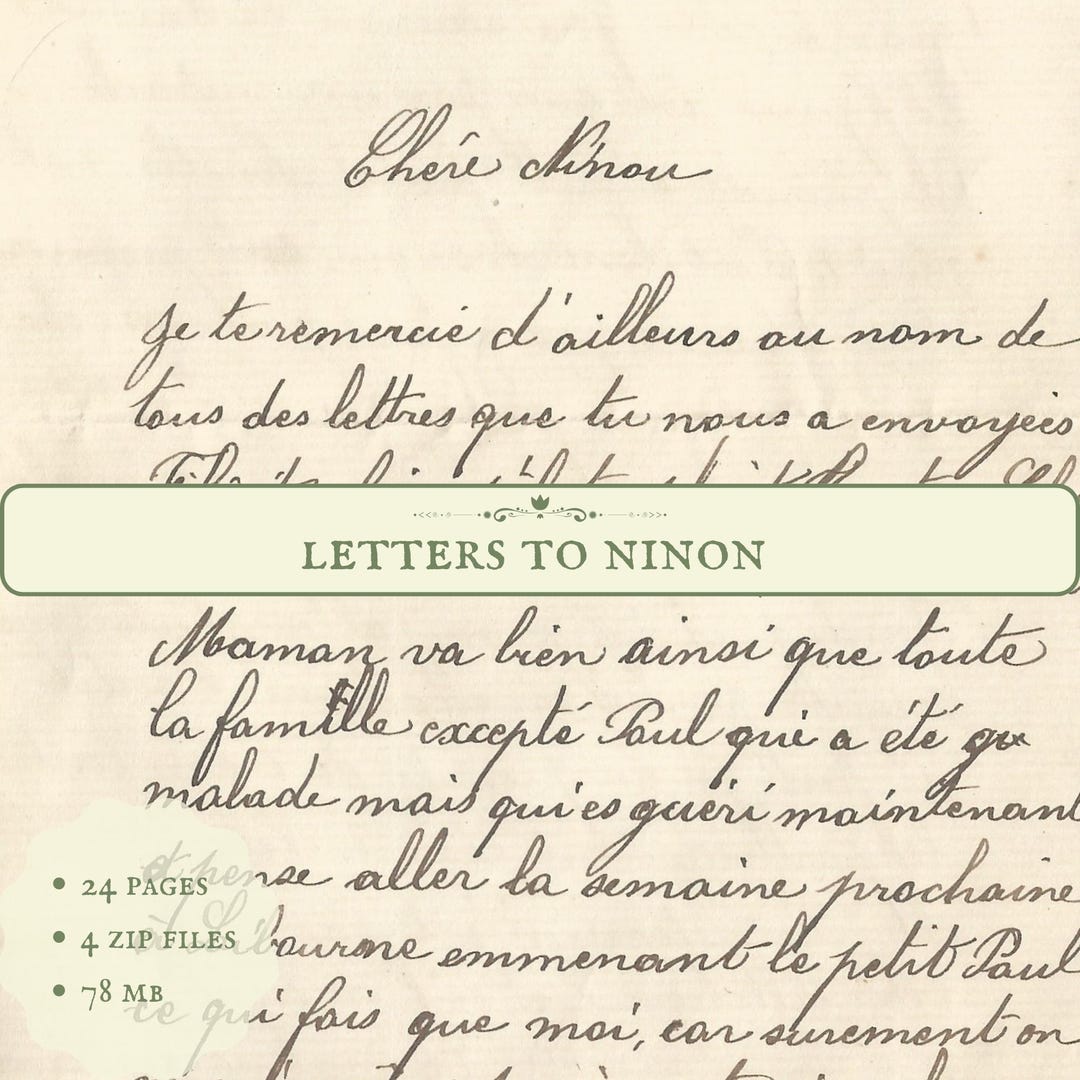 Chère Ninou
Je te remercie d'ailleurs au nom de
tous des lettres que tu nous a envoyées
LETTERS TO NINON
Maman va bien ainsi que toute
la famille excepté Paul qui a été gu
malade mais qui es guéri maintenant
et pense aller la semaine prochaine
• 24 PAGES
à Libourne emmenant le petit Paul
• 4 ZIP FILES
ce qui fais que moi, car surement on
• 78 MB